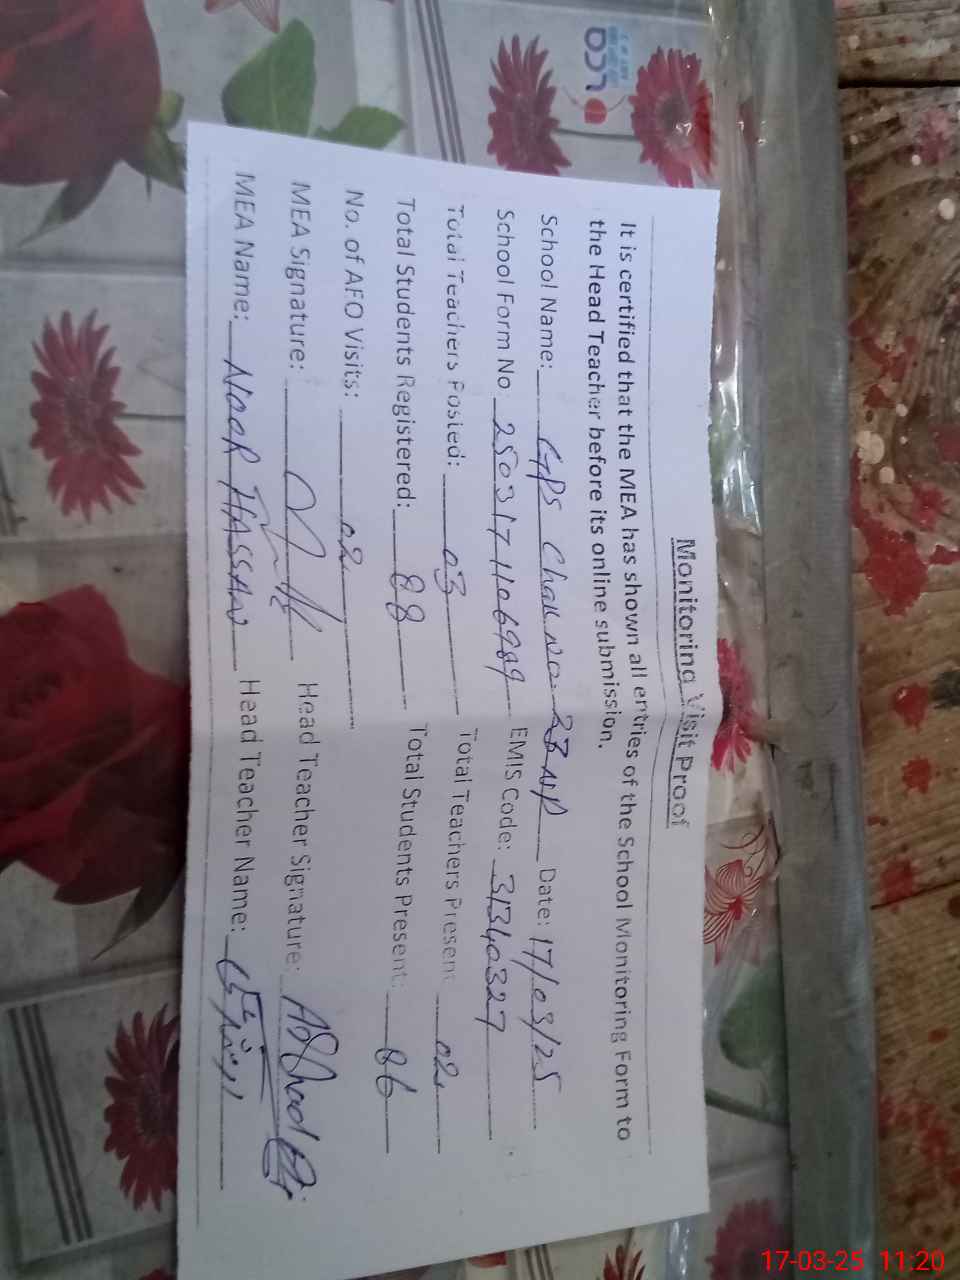 Monitoring Visit Proof
It is certified that the MEA has shown all entries of the School Monitoring Form to
the Head Teacher before its online submission.
School Name: GPS Chak No. 23 NP Date: 17/03/25
School Form No. 250317 EMIS Code: 31340327
Total Teachers Posted: 03 Total Teachers Present 02
Total Students Registered: 88 Total Students Present: 86
No. of AEO Visits: 02
MEA Signature: Head Teacher Signature: Arshad
MEA Name: NOOR HASSAN Head Teacher Name:
17-03-25 11:20